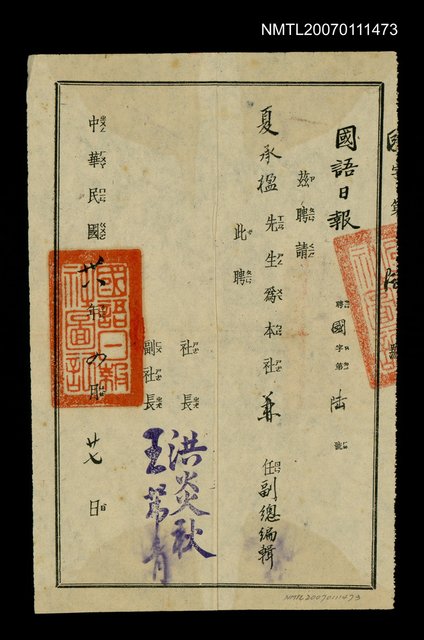 NMTL20070111473
國語日報
聘國字第陸號
茲聘請
夏承楹先生為本社兼任副總編輯
此聘
社長 洪炎秋
副社長 王茀青
中華民國卅八年九月廿七日
國語日報社圖記
NMTL20070111473